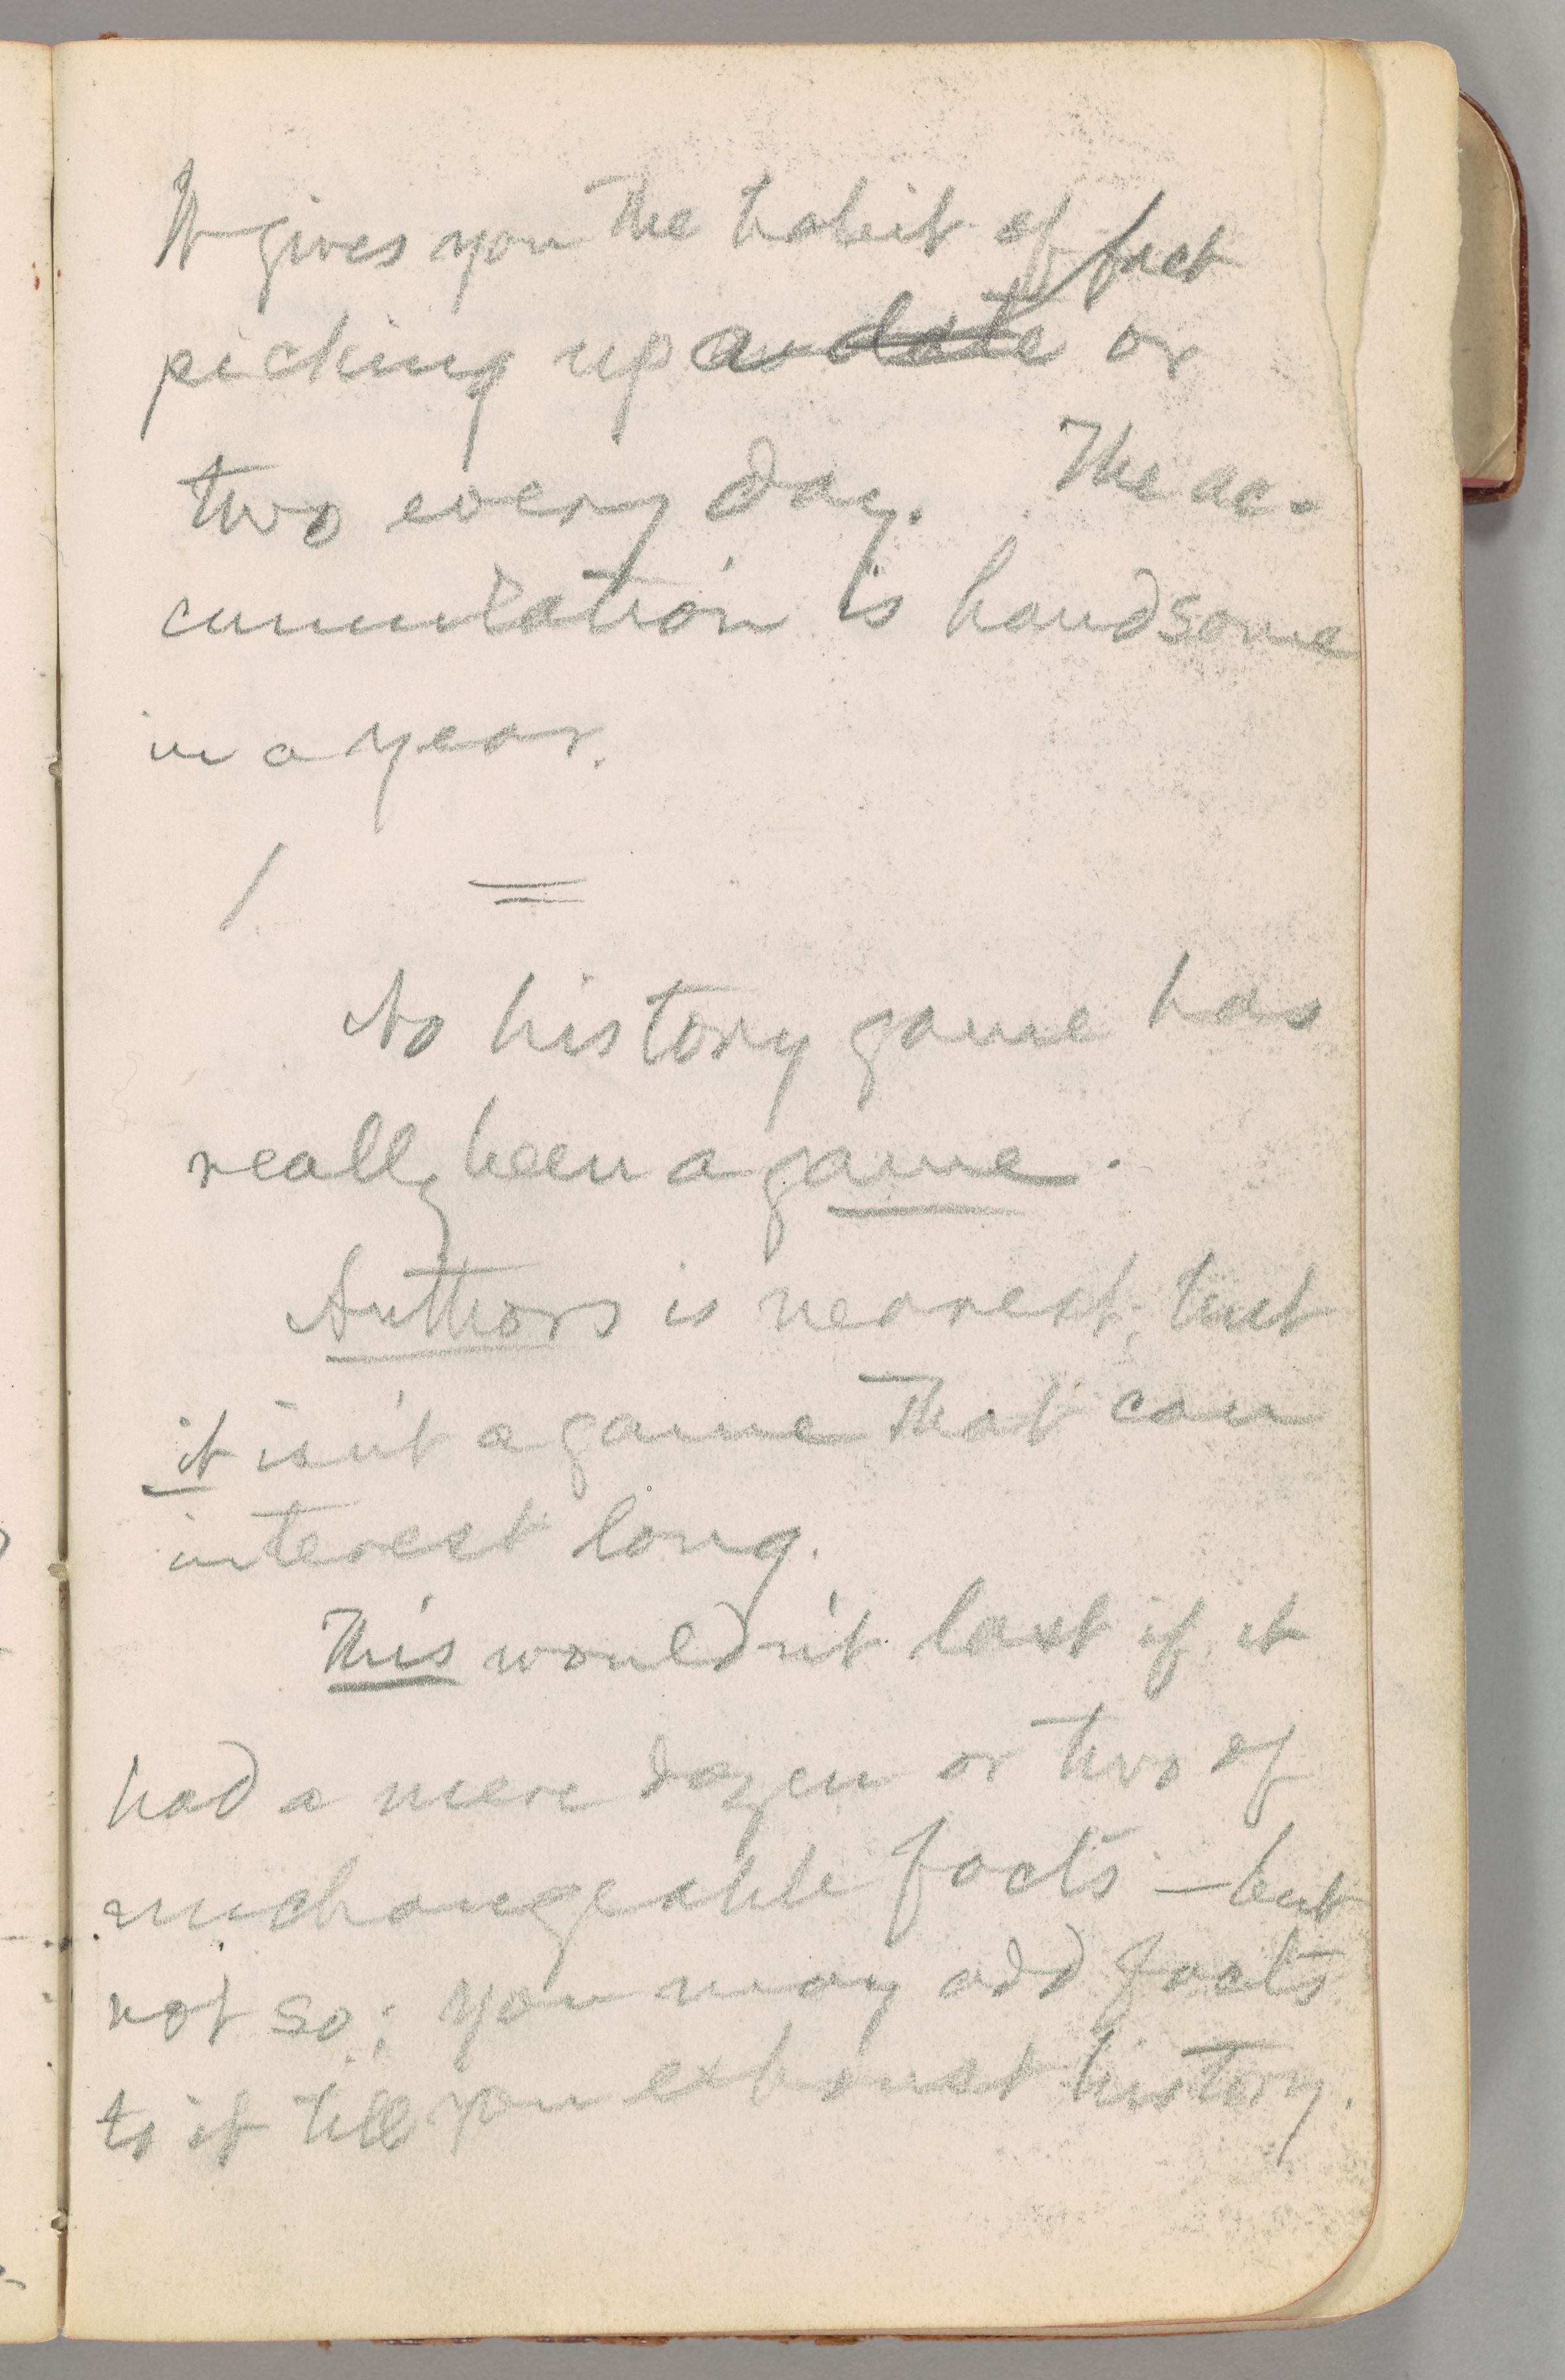 It gives you the habit of fact
picking up a date or
two every day. The ac-
cumulation is handsome
in a year.
/ =
No history game has
really been a game.
Authors is nearest, but
it isn't a game that can
interest long.
This wouldn't last if it
had a mere dozen or two of
unchangeable facts — but
not so; you may add facts
to it till you exhaust history.